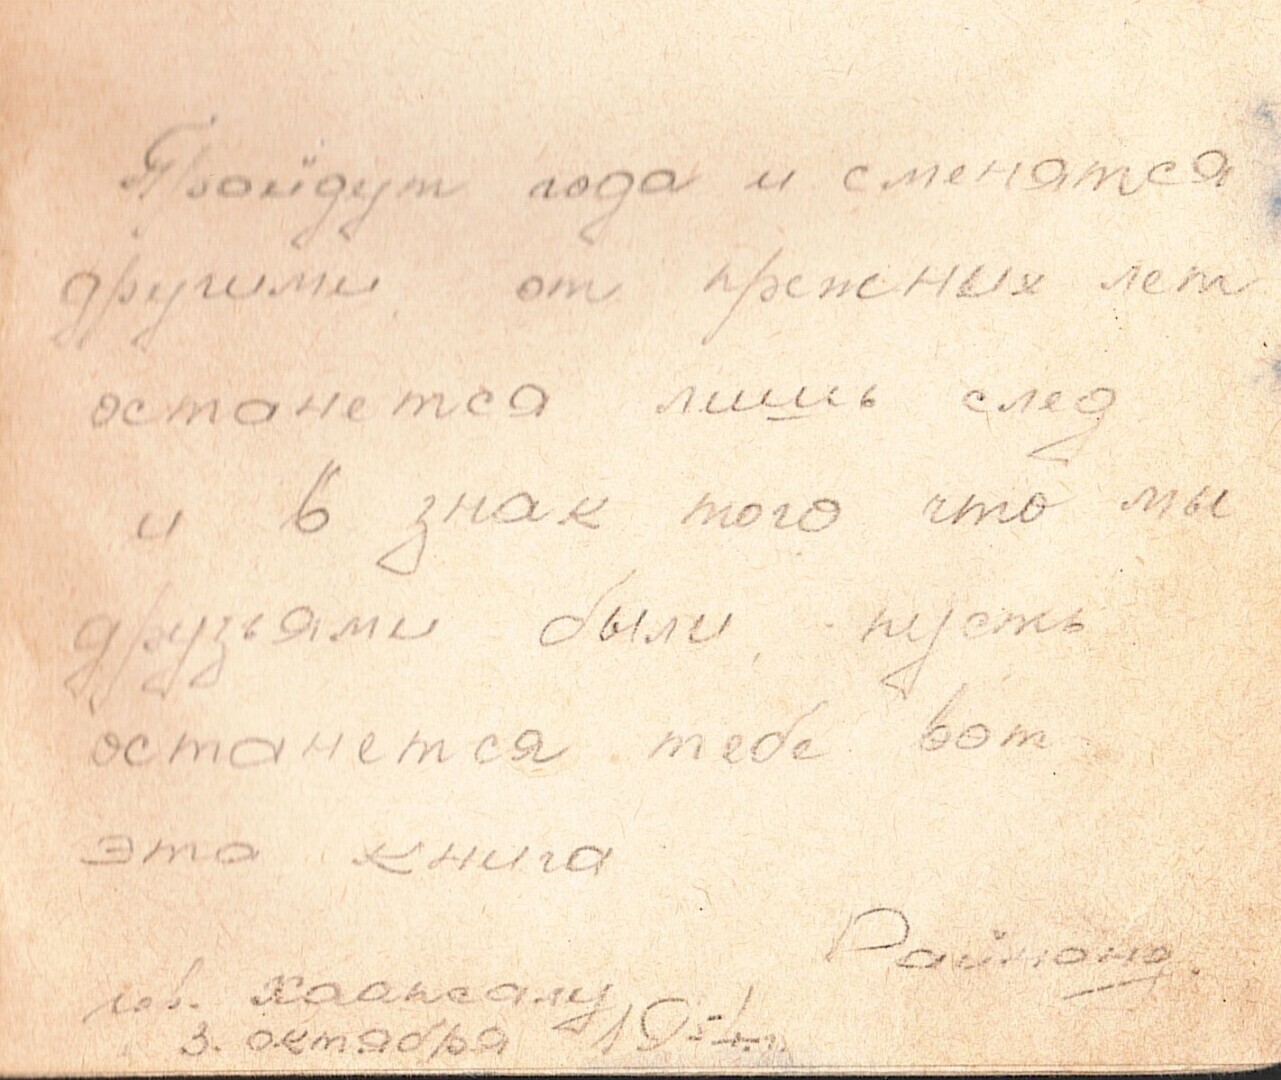 Пройдут года и сменятся
другими от прежных лет
останется лишь след
и в знак того что мы
друзьями были, пусть
останется тебе вот
эта книга
Хаапсалу
3. октября 1954 г.